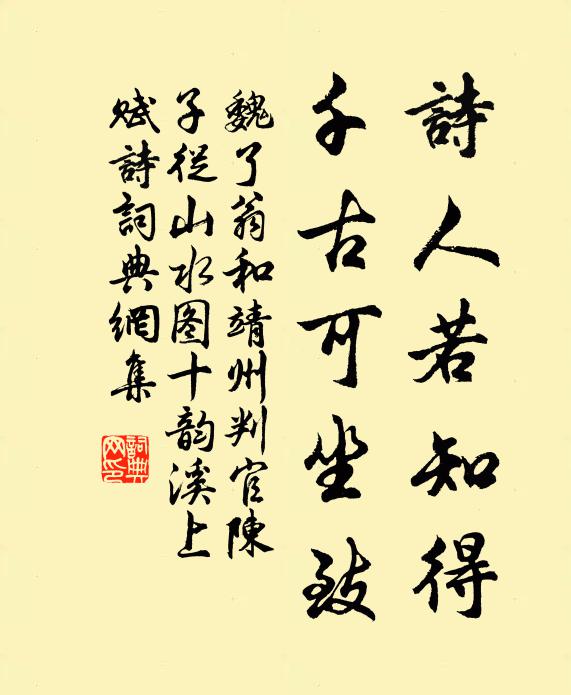 詩人若知得
千古可坐致
魏了翁和靖州判官陳
子從山水图十韵溪上
赋詩詞典網集
詞典网印